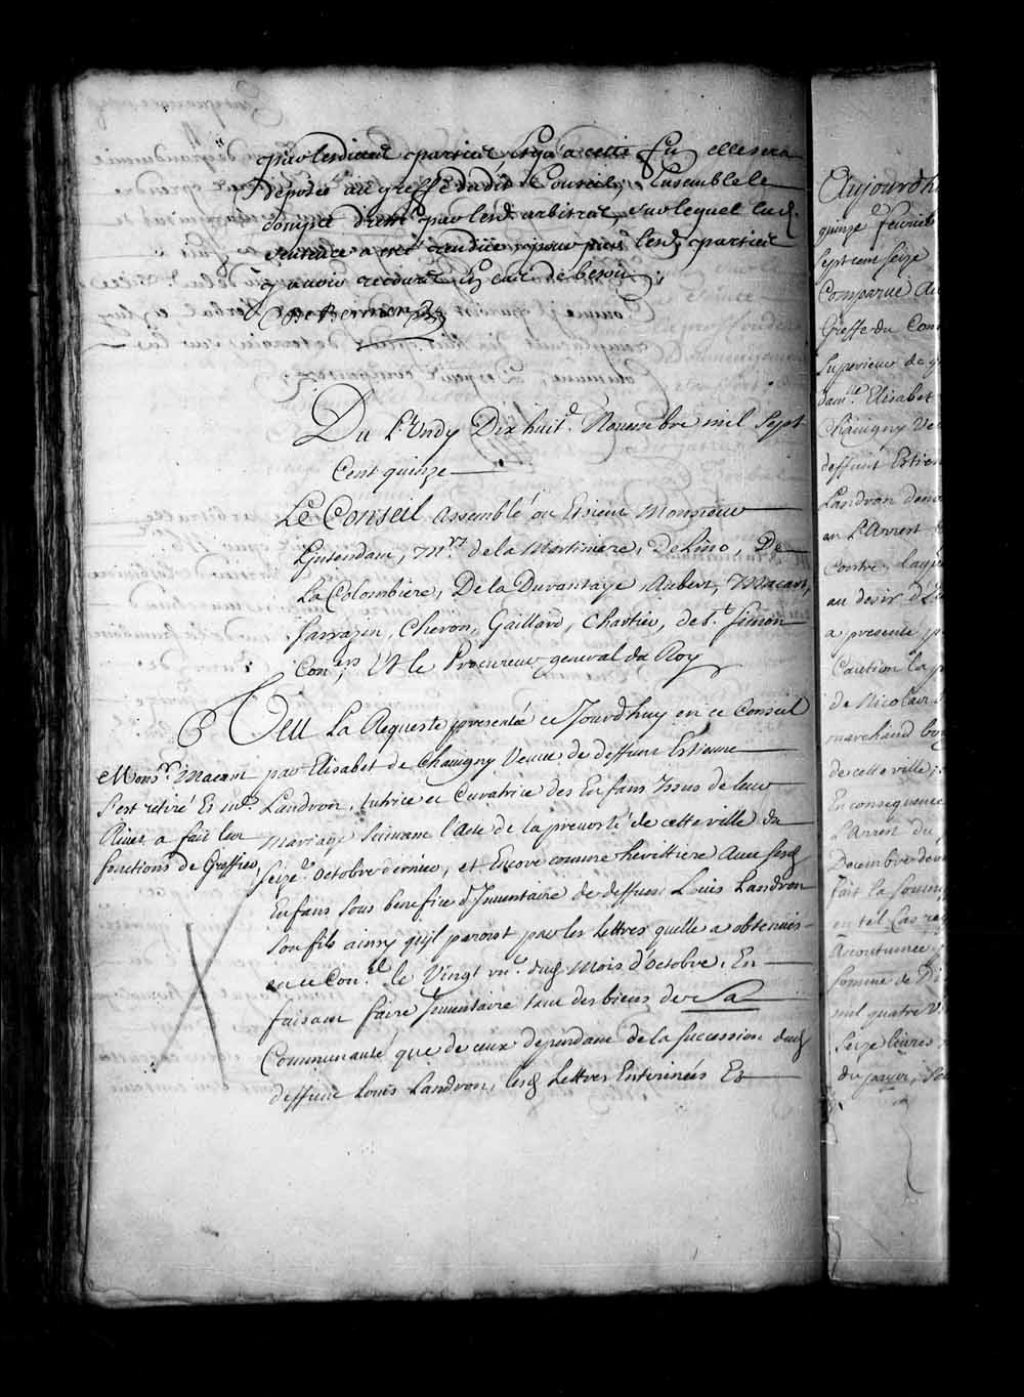 par lesdictes parties Jusqu'a cette fin elle sera
deposée au greffe dudit Conseil, Ensemble le
compte dressé par lesd. arbitres, sur lequel lad.
sentence a eté rendüe, pour par lesd. parties
y avoir recours en cas de besoin
De Bermen
Du Lundy Dix huit.e Nouembre mil Sept
Cent quinze
Le Conseil assemblé ou Estoient Monsieur
L'jntendant, Mrs de la Martiniere, De Lino, De
La Colombiere, De la Durantaye, Aubert, Macart,
Sarrazin, Cheron, Gaillard, Chartier, de St. Simon
Con.ers Et le Procureur general du Roy
Veu La Requeste presentée ce Jourdhuy en ce Conseil
par Elisabet de Chauigny Veuue de deffunt Estienne
Landron, tutrice et Curatrice des Enfans Issus de leur
mariage Suiuant l'Acte de la preuosté de cette ville du
seize.e octobre dernier, et Encore comme heritiere Auec sesd
Enfans sous benefice d'Inuentaire de deffunt Loüis Landron
son fils ainsy qu'jl paroist par les Lettres quelle a obtenües
en ce Con.el le Vingt vn.e dud Mois d'octobre, En
faisant faire Inuentaire tant des biens de sa
Communauté que de ceux dependans de la succession dud
deffunt Loüis Landron, lesd Lettres Enterinées Et
Mons.r Macart
s'est retiré Et m.e
Riuet a fait les
fonctions de Greffier,
Aujourdh
quinze.e Feurier
Sept cent seize
Comparüe Au
Greffe du Con
Superieur de q
dam.lle Elisabet
Chauigny Ve
deffunt Estien
Landron deno
en L'Arrest
contre, laq
au desir d'
a presenté p
Caution la p
de Nicolas
marchand bo
de cette ville;
En consequence
l'Arrest du
Decembre der
fait la soum
en tel Cas re
Accoutumée
somme de Di
mil quatre V
seize liures
du payer,